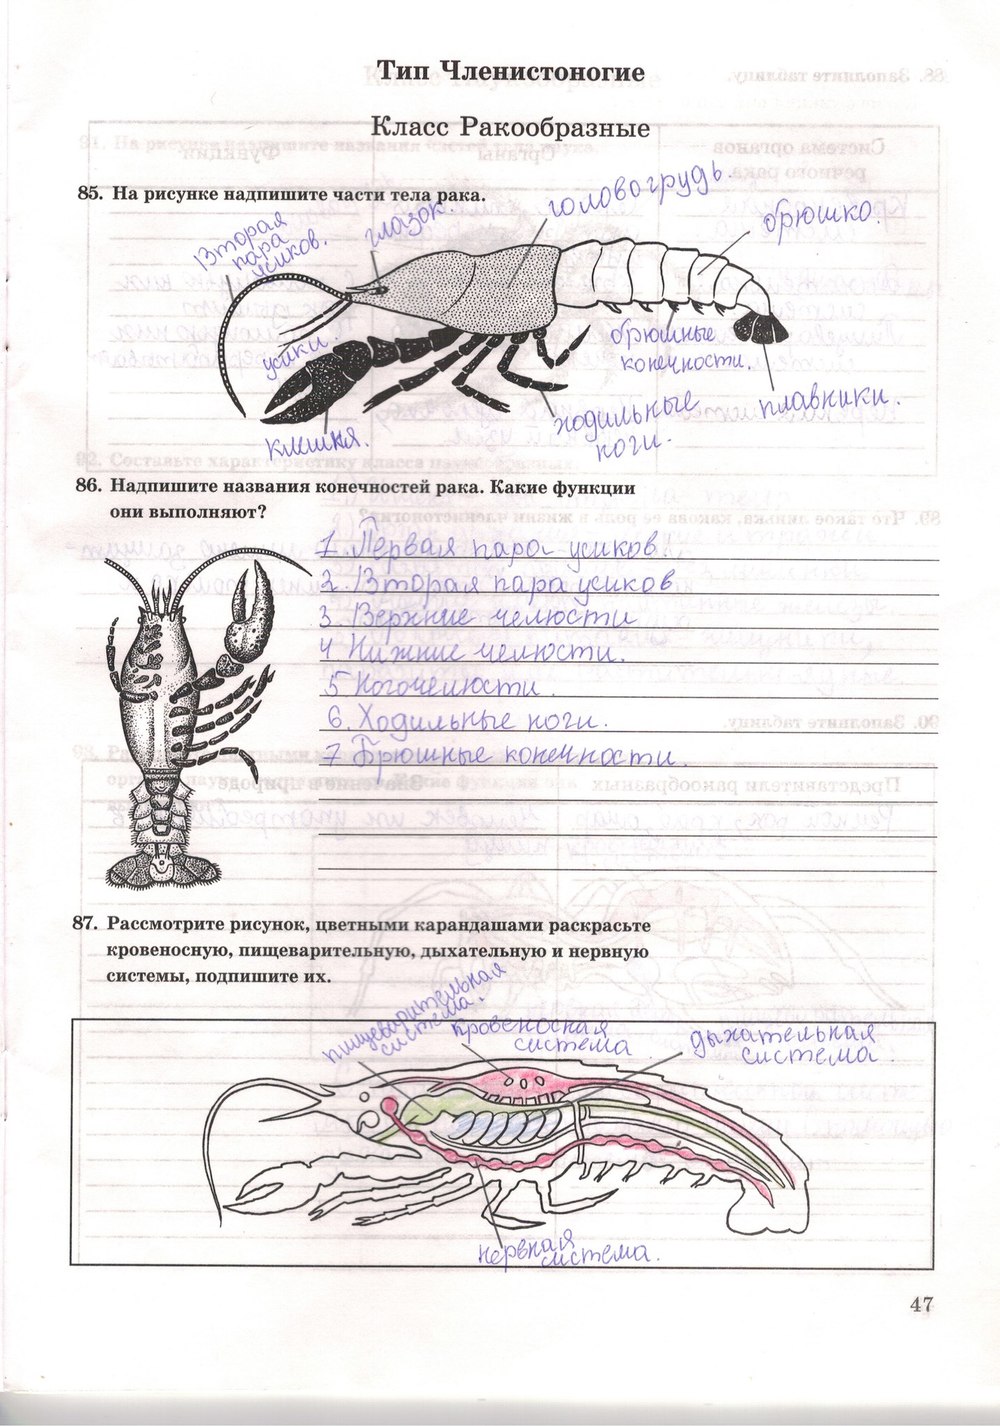 Тип Членистоногие
Класс Ракообразные
85. На рисунке надпишите части тела рака.
Вторая
пара
усиков.
глазок.
головогрудь.
брюшко.
усики.
клешня.
ходильные
ноги.
брюшные
конечности.
плавники.
86. Надпишите названия конечностей рака. Какие функции
они выполняют?
1. Первая пара усиков
2. Вторая пара усиков
3. Верхние челюсти
4 Нижние челюсти.
5 Ногочелюсти.
6. Ходильные ноги.
7 Брюшные конечности.
87. Рассмотрите рисунок, цветными карандашами раскрасьте
кровеносную, пищеварительную, дыхательную и нервную
системы, подпишите их.
пищеварительная
система.
кровеносная
система
дыхательная
система.
нервная
система.
47